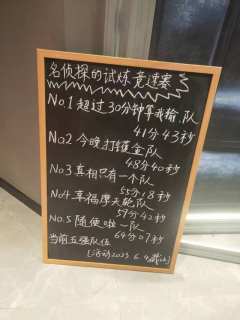 名侦探的试炼竞过赛
No.1 超过30分钟算我输队
41分43秒
No2 今晚打镀金队
48分40秒
No.3 真相只有一个队
55分18秒
No4 幸福摩天轮队
57分42秒
No.5 随便啦一队
64分07秒
当前五强队伍
[活动2023 6.9